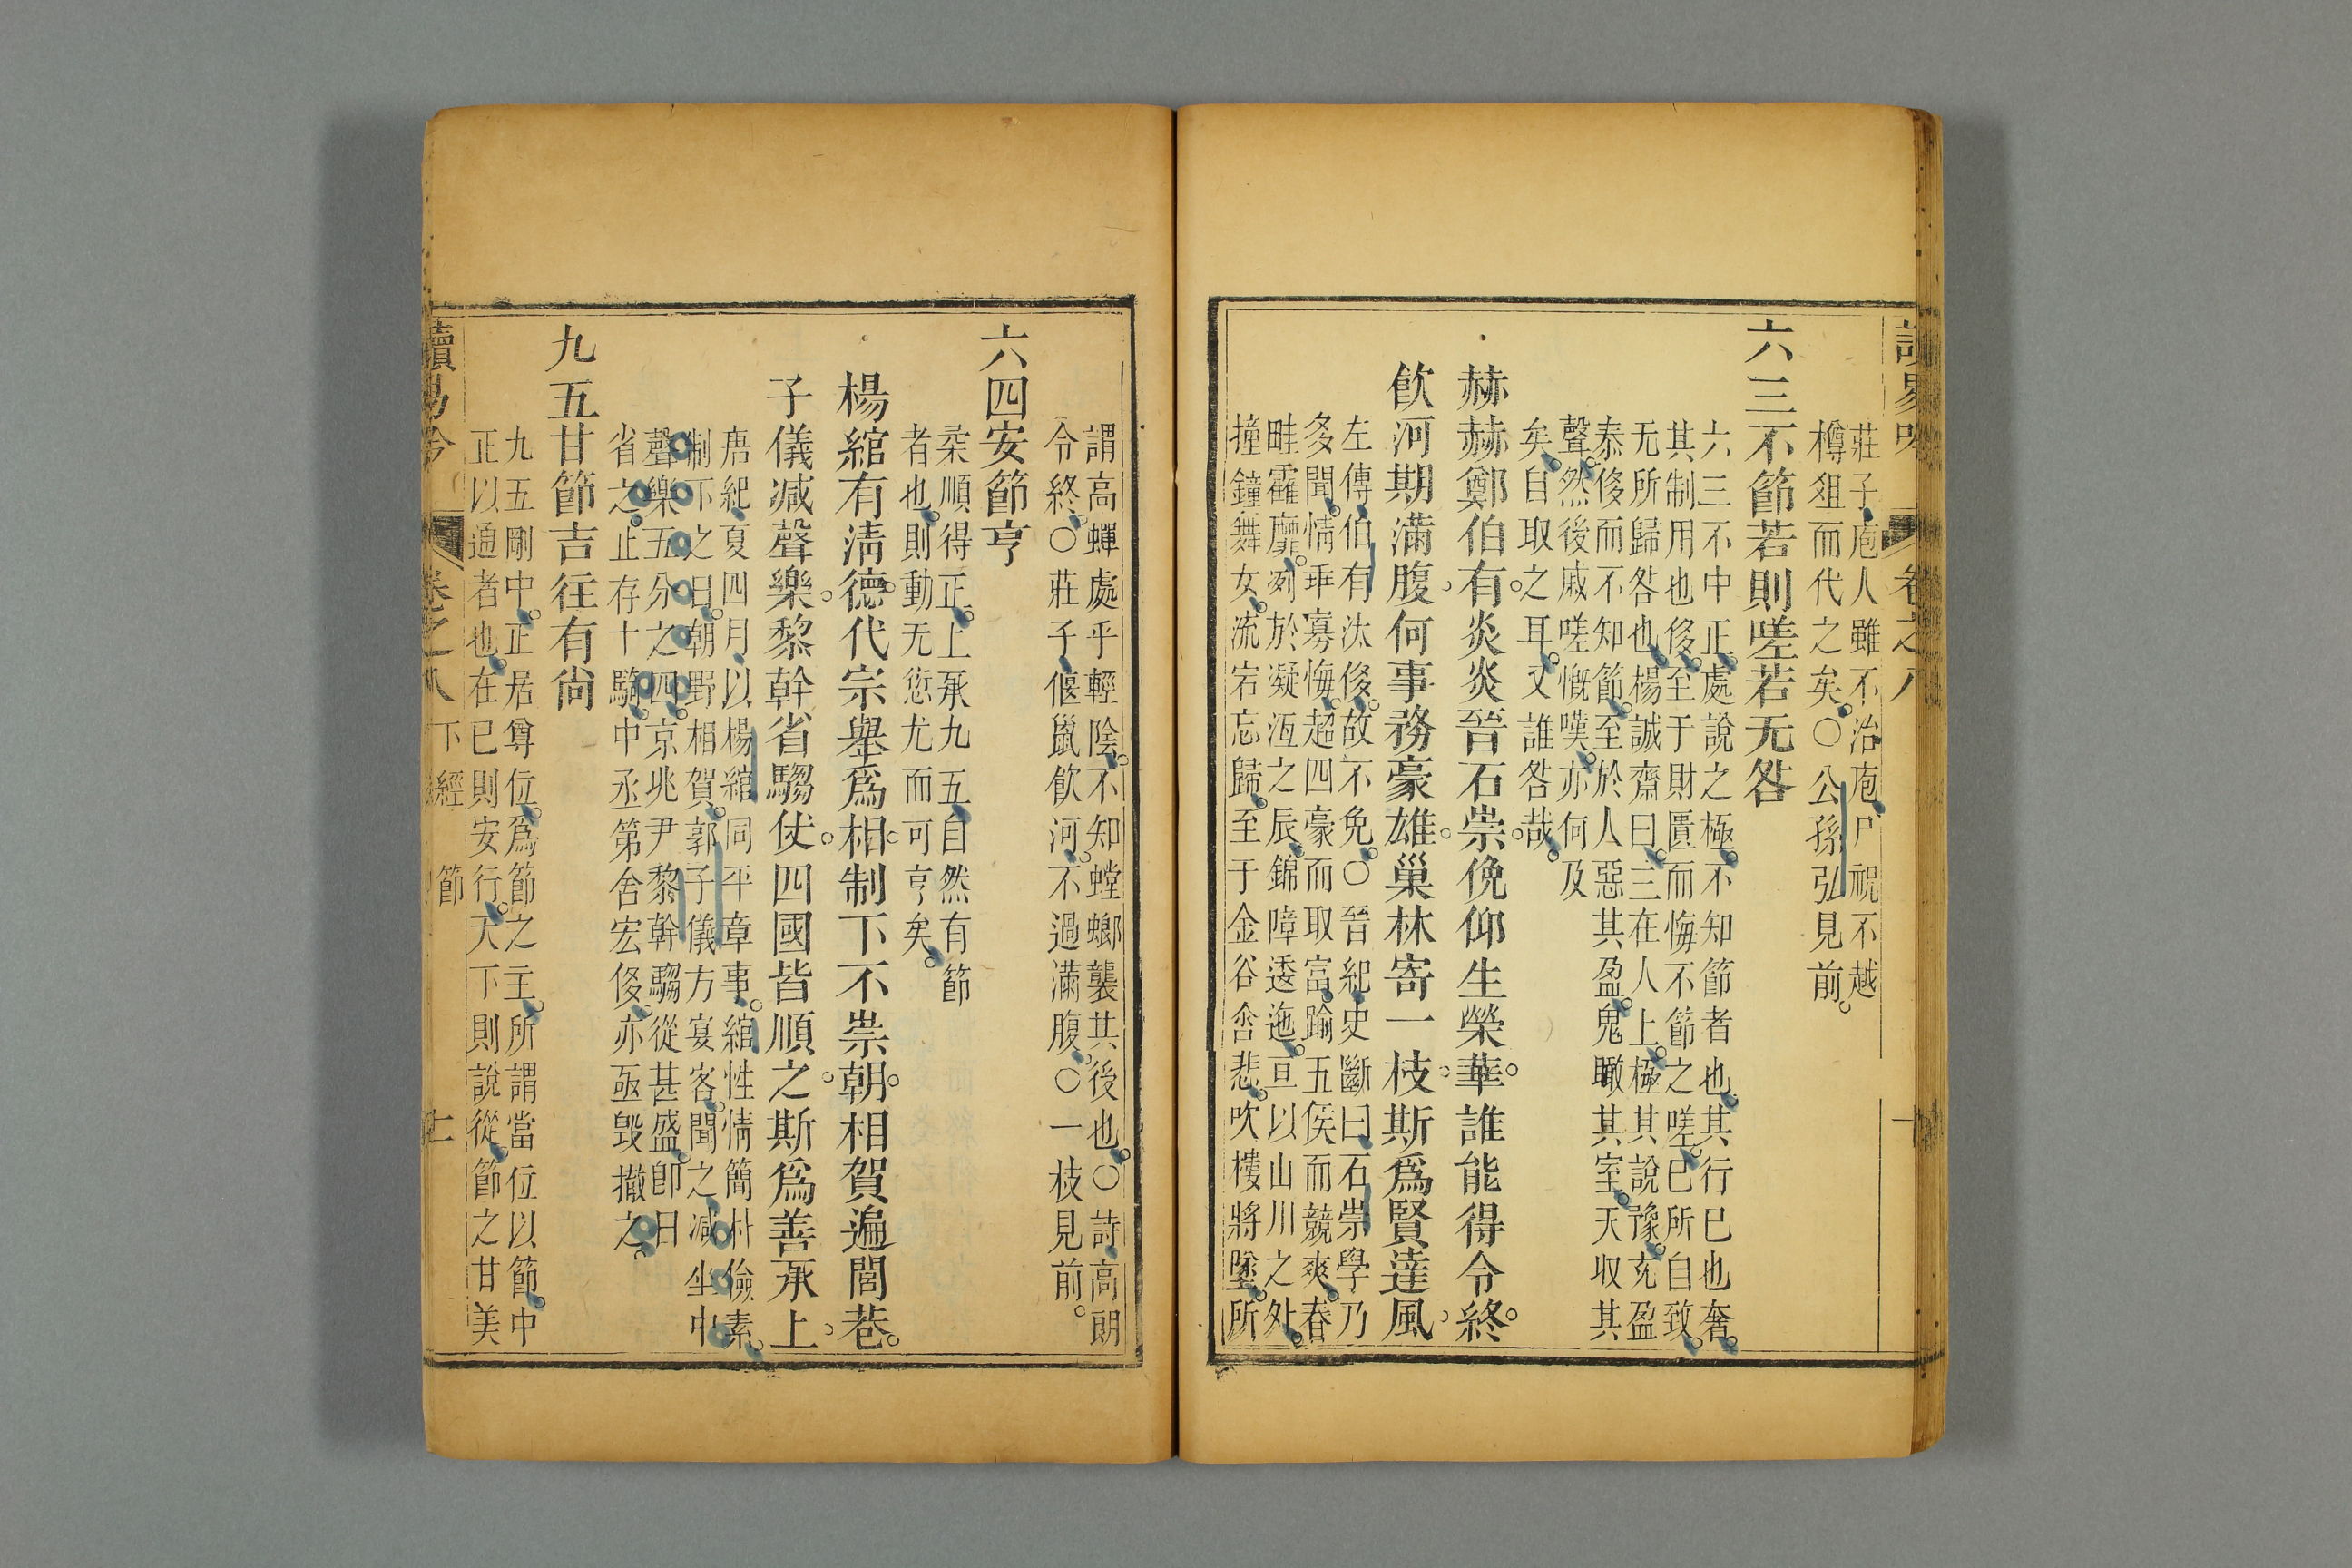 卷之八
莊子庖人雖不治庖尸祝不越
樽俎而代之矣〇公孫弘見前
六三不節若則嗟若无咎
六三不中正處說之極不知節者也其行巳也奢
其制用也侈至于財匱而悔不節之嗟巳所自致
无所歸咎也楊誠齋曰三在人上極其說豫充盈
泰侈而不知節至於人惡其盈鬼瞰其室天収其
聲然後戚嗟慨嘆亦何及
矣自取之耳又誰咎哉
赫赫鄭伯有炎炎晉石崇俛仰生榮華誰能得令終
飮河期滿腹何事務豪雄巢林寄一枝斯爲賢達風
左傳伯有汰侈故不免〇晉紀史斷曰石崇學乃
多聞情乖寡悔超四豪而取富踰五侯而競爽春
畦靃靡列於凝沍之辰錦障逶迤亘以山川之外
撞鐘舞女流宕忘歸至于金谷含悲吹樓將墜所
謂高蟬處乎輕陰不知螳螂襲其後也〇詩高朗
令終〇莊子偃鼠飮河不過滿腹〇一枝見前
六四安節亨
柔順得正上承九五自然有節
者也則動无愆尤而可亨矣
楊綰有淸德代宗舉爲相制下不崇朝相賀遍閭巷
子儀减聲樂黎幹省騶仗四國皆順之斯爲善承上
唐紀夏四月以楊綰同平章事綰性情簡朴儉素
制下之日朝野相賀郭子儀方宴客聞之减坐中
聲樂五分之四京兆尹黎幹騶從甚盛卽日
省之止存十騎中丞第舍宏侈亦亟毀撤之
九五甘節吉往有尙
九五剛中正居尊位爲節之主所謂當位以節中
正以通者也在巳則安行天下則說從節之甘美
讀易吟 卷之八 下經 節 十